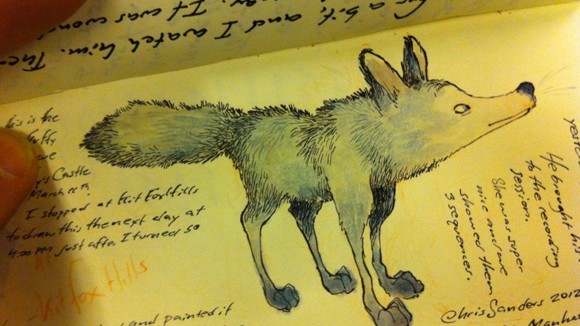 for a bit, and I watch him. The
It was won
his is the
fluffy
Castle
March
I stopped at Kit Fox Hills
to draw this the next day at
4:00 PM just after I turned 50
kit fox Hills
and painted it
yester
He brought his
to the recording
session.
She was super
nice and we
showed them
3 sequences.
Chris Sanders 2012
Manha